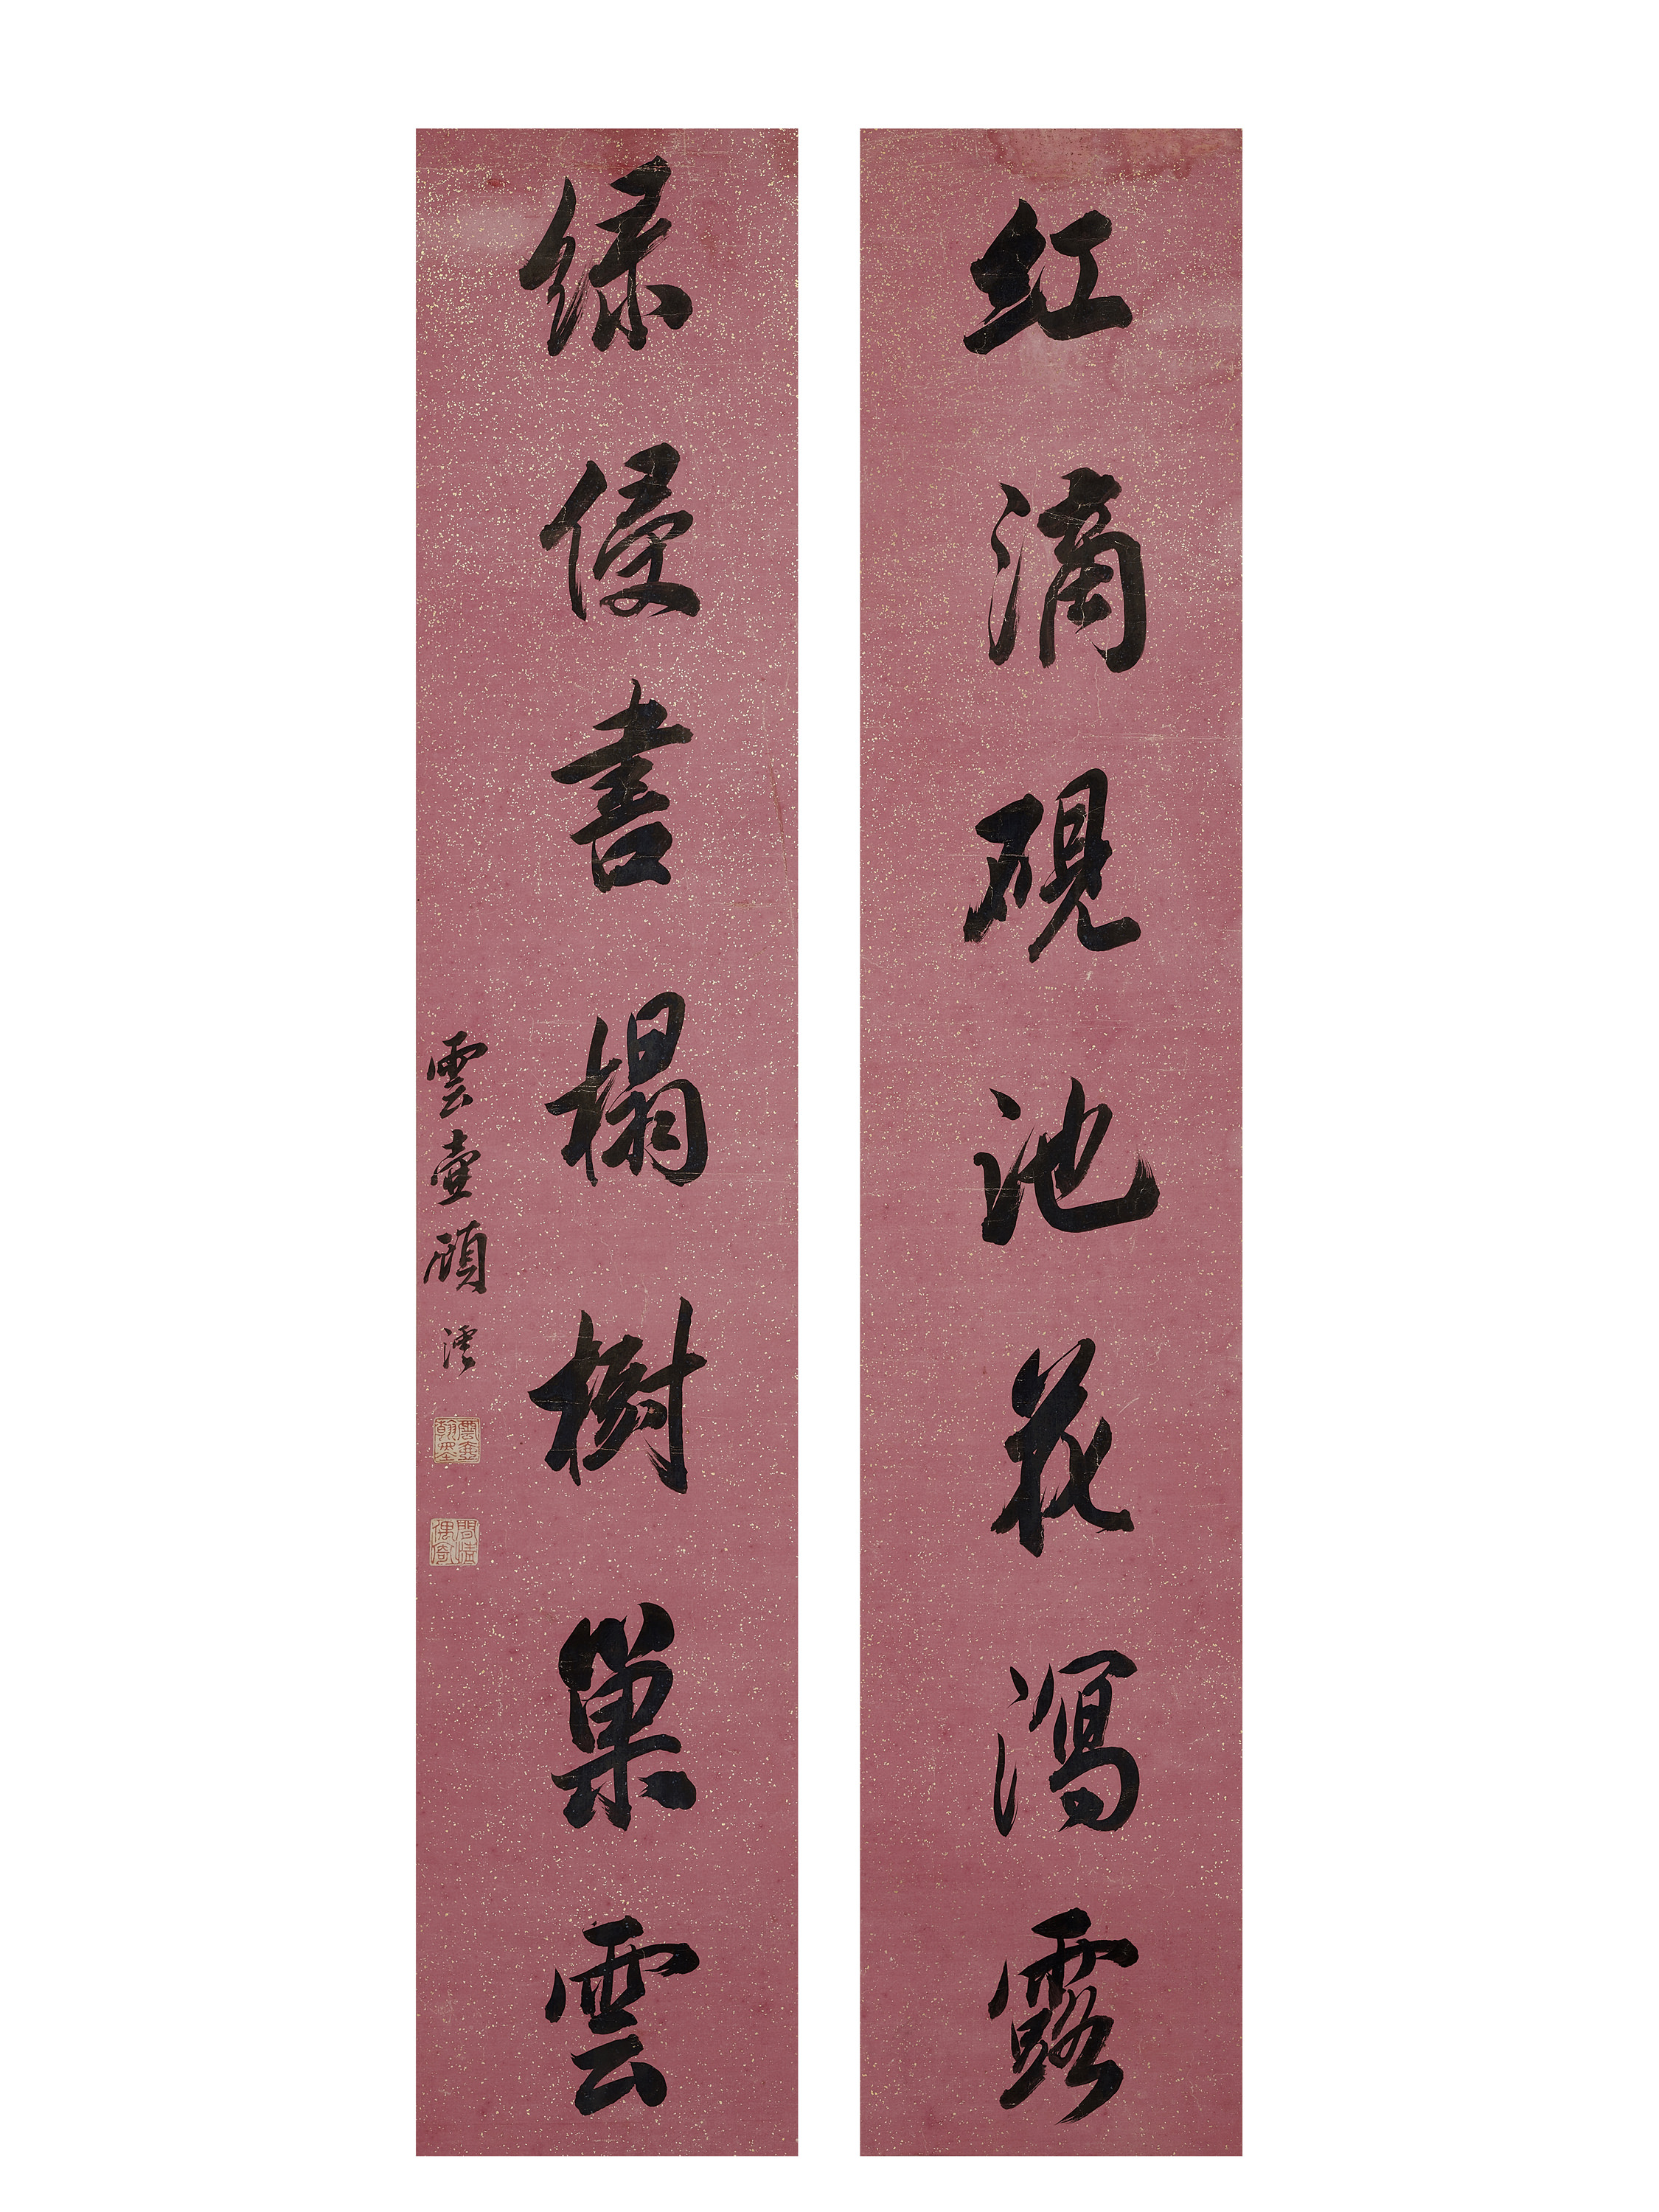 紅滴硯池花瀉露
綠侵書榻樹巢雲
雲壺顧澐
雲壺翰墨